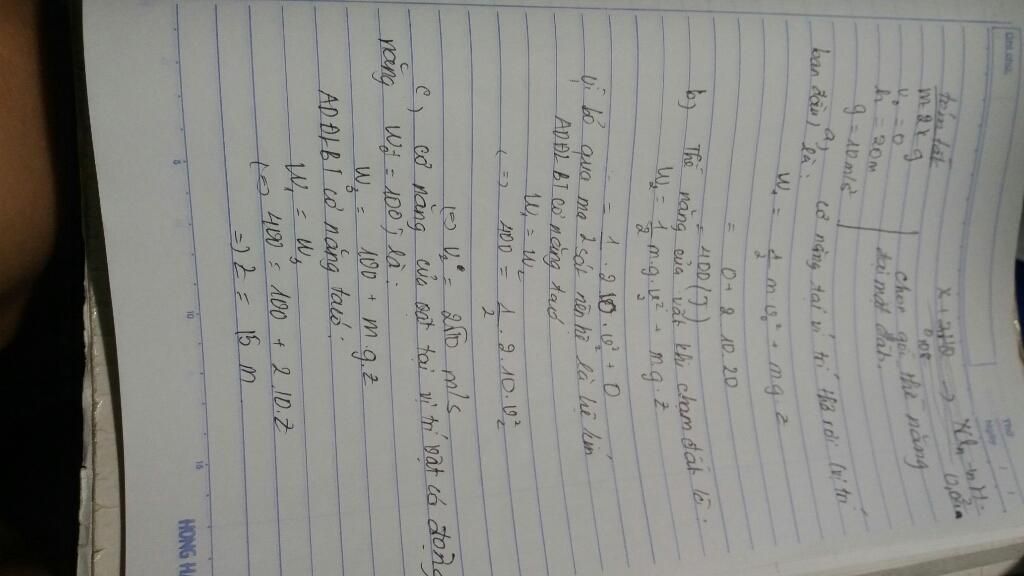 tóm tắt
m = 2 kg
v₀ = 0
h = 20m
g = 10 m/s²
chọn gốc thế năng
tại mặt đất.
a, cơ năng tại vị trí thả rơi (vị trí
ban đầu) là:
W₁ = 1/2 m v₀² + m g z
= 0 + 2.10.20
= 400 (J)
b) Thế năng của vật khi chạm đất là:
W₂ = 1/2 m g. v₂² + m g. z
= 1/2 . 2.10. v₂² + 0
Vì bỏ qua ma sát nên hệ là hệ kín
ADĐLBT cơ năng ta có
W₁ = W₂
(=) 400 = 1/2 . 2.10. v₂²
(=) v₂ = 2√10 m/s
c) cơ năng của vật tại vị trí vật có động
năng Wđ = 100 J là:
W₃ = 100 + m g. z
ADĐLBT cơ năng ta có:
W₁ = W₃
(=) 400 = 100 + 2.10.z
=) z = 15 m
HONG H